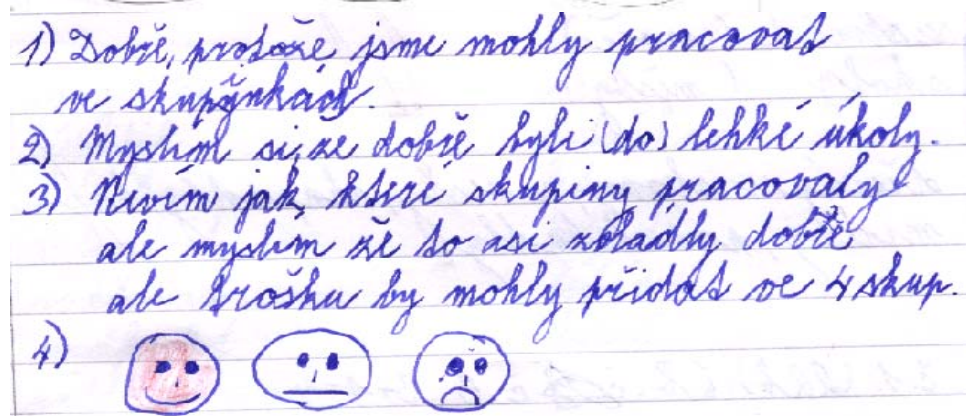 1) Dobře, protože jsme mohly pracovat
ve skupýnkách.
2) Myslím si, ze dobře byli (do) lehké úkoly.
3) Nevím jak, které skupiny pracovaly
ale myslim že to asi zvládly dobře
ale trošku by mohly přidat ve 4 skup.
4)